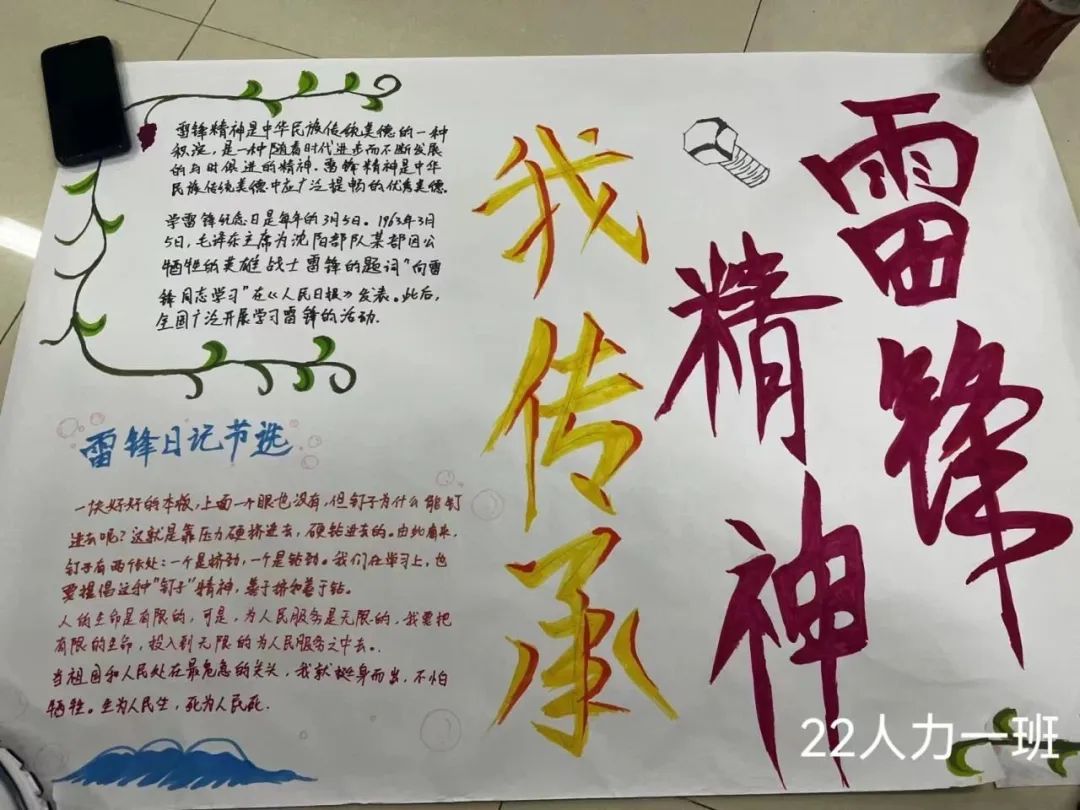 雷锋
精神
我传承
雷锋精神是中华民族传统美德的一种
积淀，是一种随着时代进步而不断发展
的与时俱进的精神．雷锋精神是中华
民族传统美德中应广泛提畅的优秀美德．
学雷锋纪念日是每年的3月5日。1963年3月
5日，毛泽东主席为沈阳部队某部因公
牺牲的英雄战士雷锋的题词"向雷
锋同志学习"在《人民日报》发表。此后，
全国广泛开展学习雷锋的活动．
雷锋日记节选
一快好好的本板，上面一个眼也没有，但钉子为什么能钉
进去呢？这就是靠压力硬挤进去，硬钻进去的。由此看来，
钉子有两个长处：一个是挤劲，一个是钻劲。我们在学习上，也
要提倡这种"钉子"精神，善于挤和善于钻。
人的生命是有限的，可是，为人民服务是无限的，我要把
有限的生命，投入到无限的为人民服务之中去。．
当祖国和人民处在最危急的关头，我就挺身而出，不怕
牺牲。生为人民生，死为人民死．
22人力一班